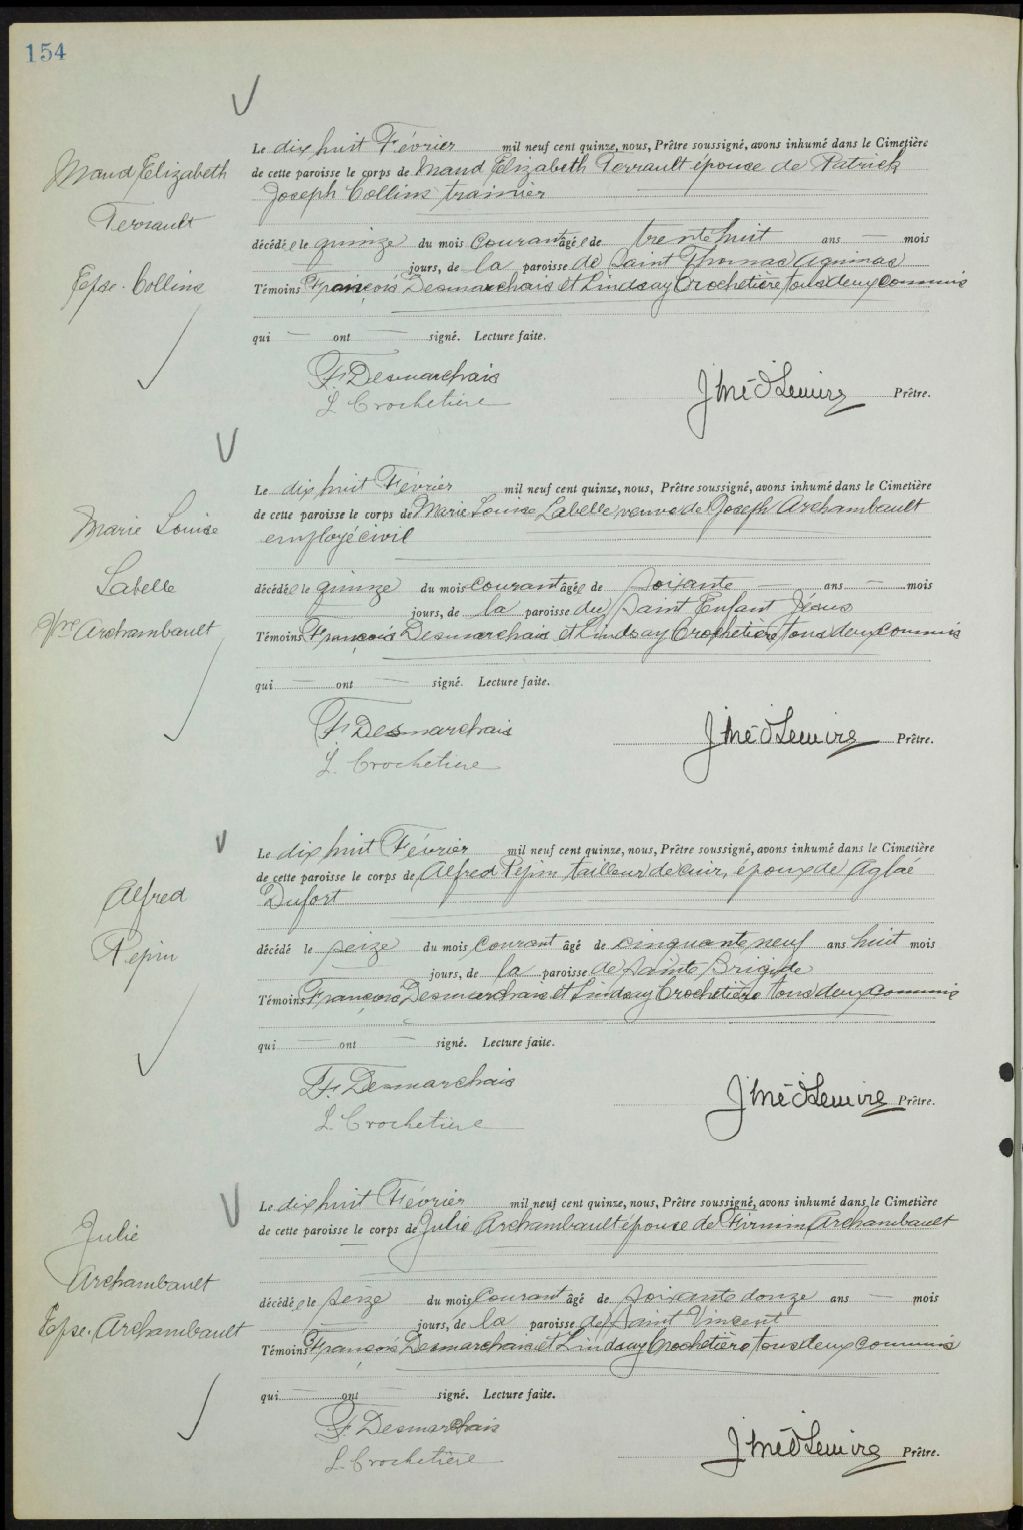 154
Maud Elizabeth
Perrault
Epse. Collins
Le dix huit Février mil neuf cent quinze, nous, Prêtre soussigné, avons inhumé dans le Cimetière
de cette paroisse le corps de Maud Elizabeth Perrault épouse de Patrick
Joseph Collins
décédée le quinze du mois courant âgée de trente huit ans — mois
— jours, de la paroisse de Saint Thomas Aquinas
Témoins François Desmarchais et Lindsay Crochetière tous deux commis
qui — ont — signé. Lecture faite.
F. Desmarchais
L. Crochetière
Prêtre.
Marie Louise
Labelle
Vve Archambault
Le dix huit Février mil neuf cent quinze, nous, Prêtre soussigné, avons inhumé dans le Cimetière
de cette paroisse le corps de Marie Louise Labelle veuve de Joseph Archambault
employé civil
décédée le quinze du mois courant âgée de soixante — ans — mois
jours, de la paroisse du Saint Enfant Jésus
Témoins François Desmarchais et Lindsay Crochetière tous deux commis
qui — ont — signé. Lecture faite.
F. Desmarchais
L. Crochetière
Prêtre.
Alfred
Pepin
Le dix huit Février mil neuf cent quinze, nous, Prêtre soussigné, avons inhumé dans le Cimetière
de cette paroisse le corps de Alfred Pepin tailleur de cuir, époux de Aglaé
Dufort
décédé le seize du mois courant âgé de cinquante neuf ans huit mois
jours, de la paroisse de Sainte Brigide
Témoins François Desmarchais et Lindsay Crochetière tous deux commis
qui — ont — signé. Lecture faite.
F. Desmarchais
L. Crochetière
Prêtre.
Julie
Archambault
Epse. Archambault
Le dix huit Février mil neuf cent quinze, nous, Prêtre soussigné, avons inhumé dans le Cimetière
de cette paroisse le corps de Julie Archambault épouse de Firmin Archambault
décédée le seize du mois courant âgé de soixante douze ans — mois
— jours, de la paroisse de Saint Vincent
Témoins François Desmarchais et Lindsay Crochetière tous deux commis
qui — ont — signé. Lecture faite.
F. Desmarchais
L. Crochetière
Prêtre.